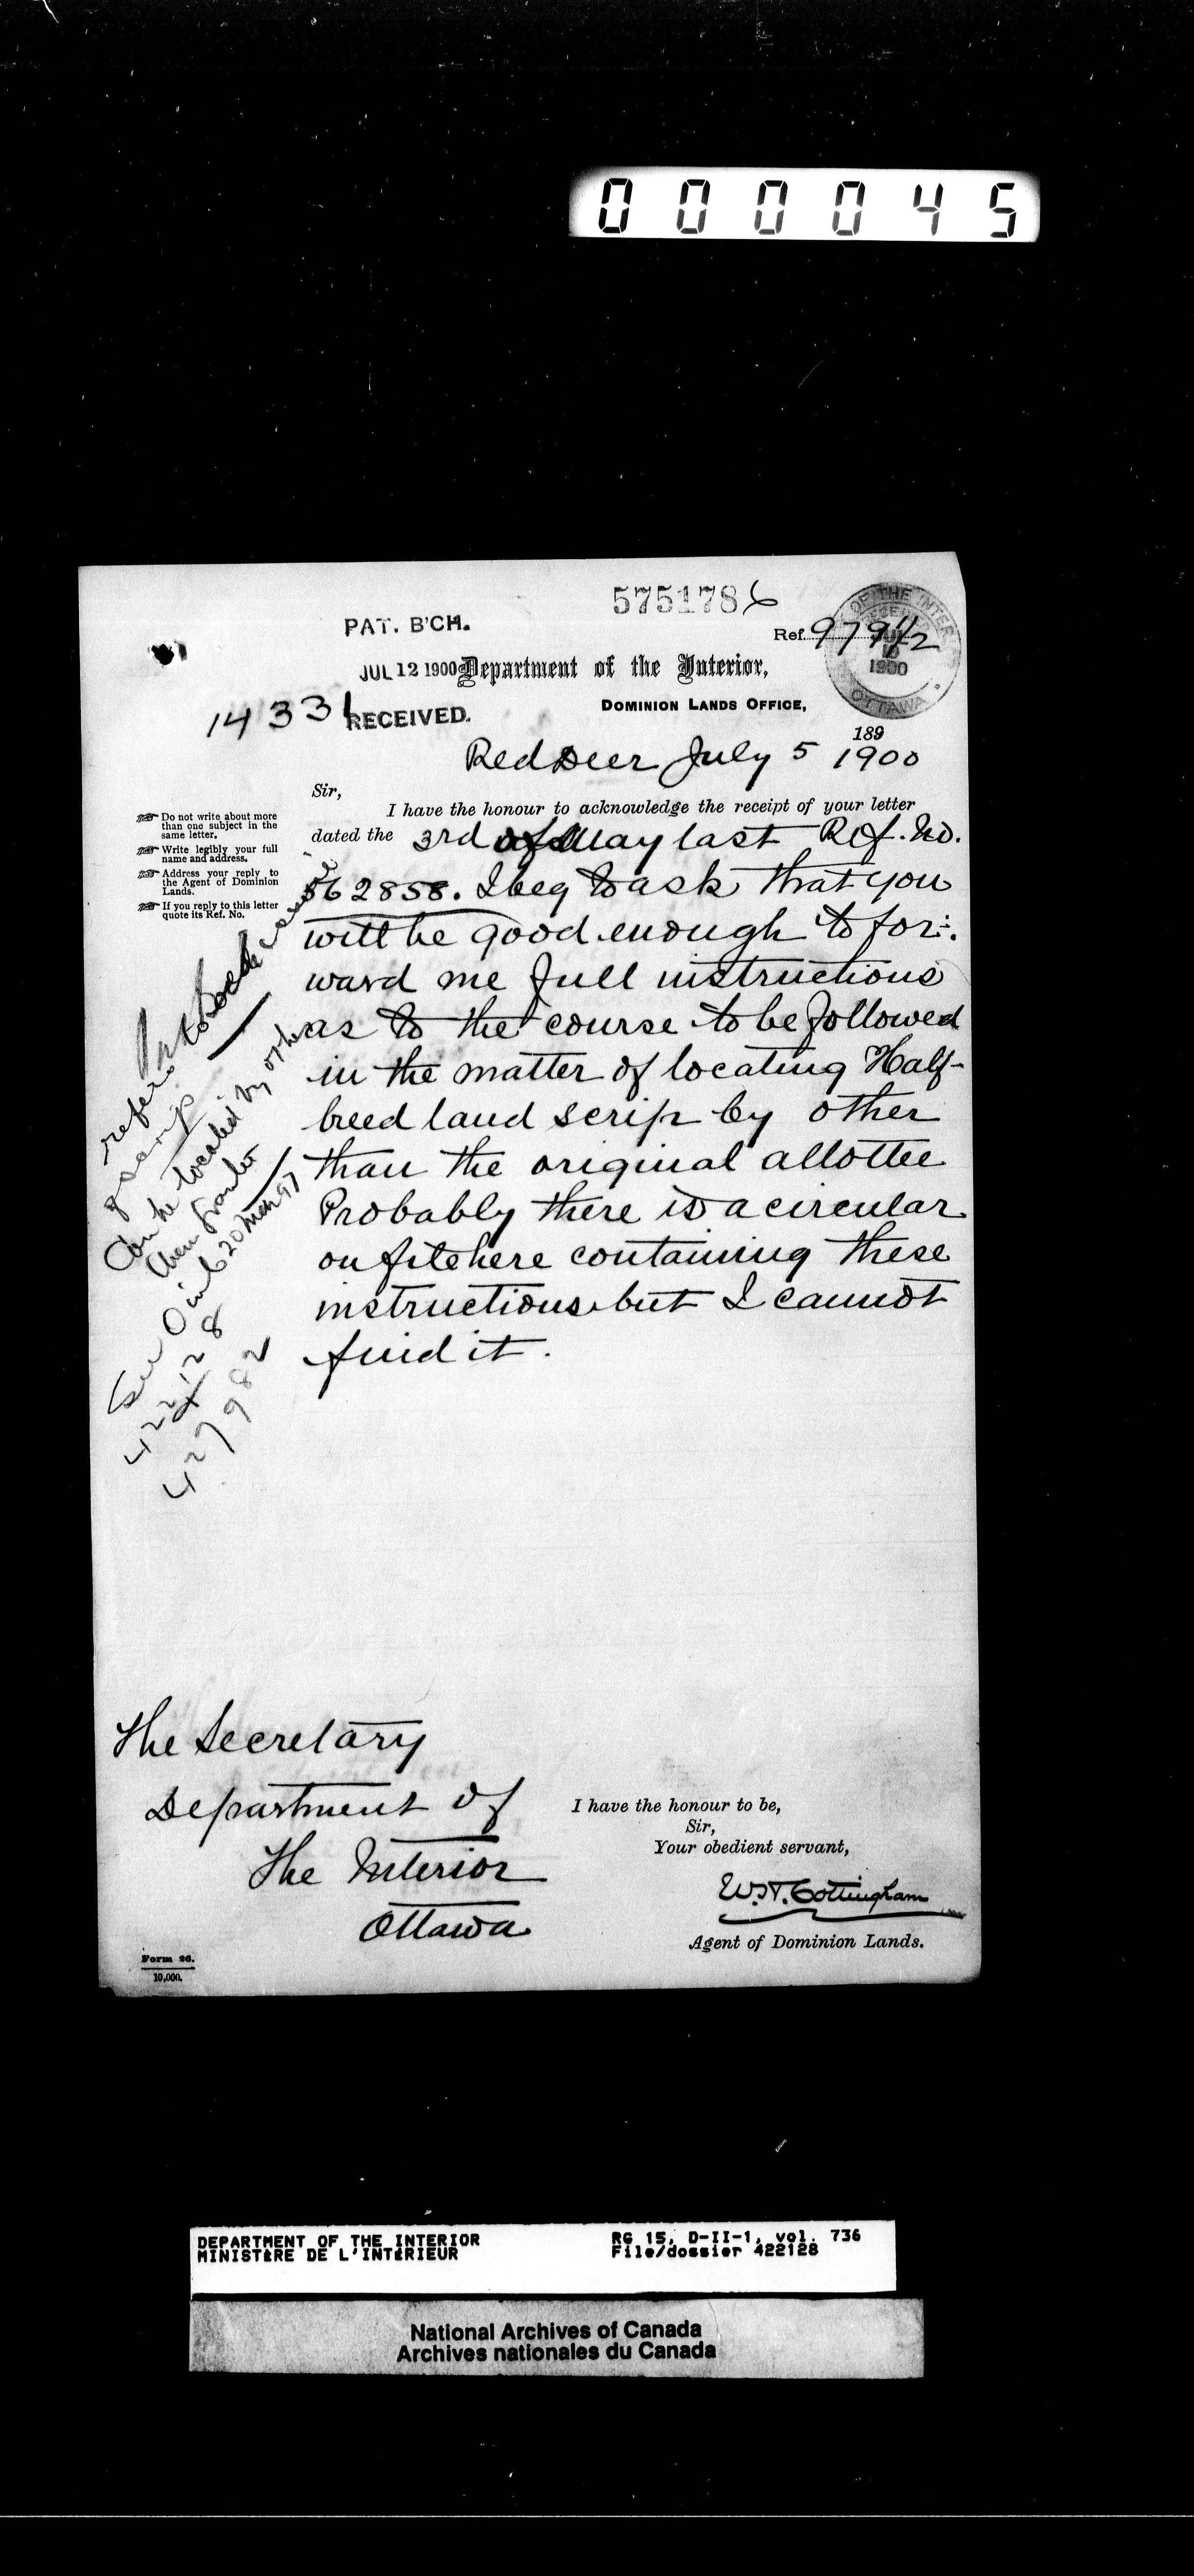 000045
5751786
PAT. B'CH.
Ref. 979 1/2
OF THE INTER
1900
OTTAWA
JUL 12 1900 Department of the Interior,
14331 RECEIVED.
DOMINION LANDS OFFICE,
189
Red Deer July 5 1900
Sir,
I have the honour to acknowledge the receipt of your letter
dated the 3rd of May last Ref. No.
562858. I beg to ask that you
will be good enough to for-
ward me full instructions
as to the course to be followed
in the matter of locating Half-
breed land scrip by other
than the original allottee
Probably there is a circular
on file here containing these
instructions but I cannot
find it.
Do not write about more
than one subject in the
same letter.
Write legibly your full
name and address.
Address your reply to
the Agent of Dominion
Lands.
If you reply to this letter
quote its Ref. No.
refer
Can be located by other
than grantee
See 20 Mch 97
422128
427982
The Secretary
Department of
The Interior
Ottawa
I have the honour to be,
Sir,
Your obedient servant,
W.H. Cottingham
Agent of Dominion Lands.
Form 26.
10,000.
DEPARTMENT OF THE INTERIOR
MINISTÈRE DE L'INTÉRIEUR
RG 15, D-II-1, vol. 736
File/dossier 422128
National Archives of Canada
Archives nationales du Canada